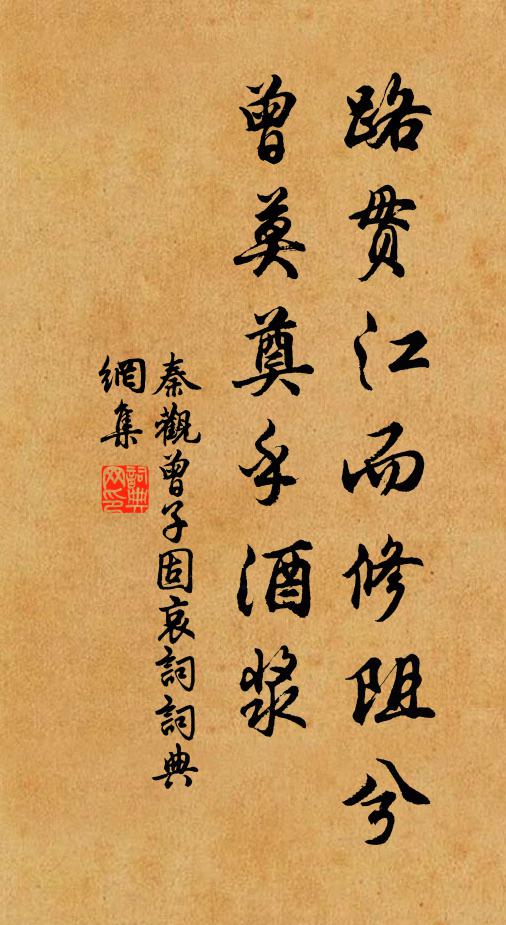 路贯江而修阻兮
曾莫奠乎酒浆
秦觀曾子固哀詞詞典
網集
詞典網印